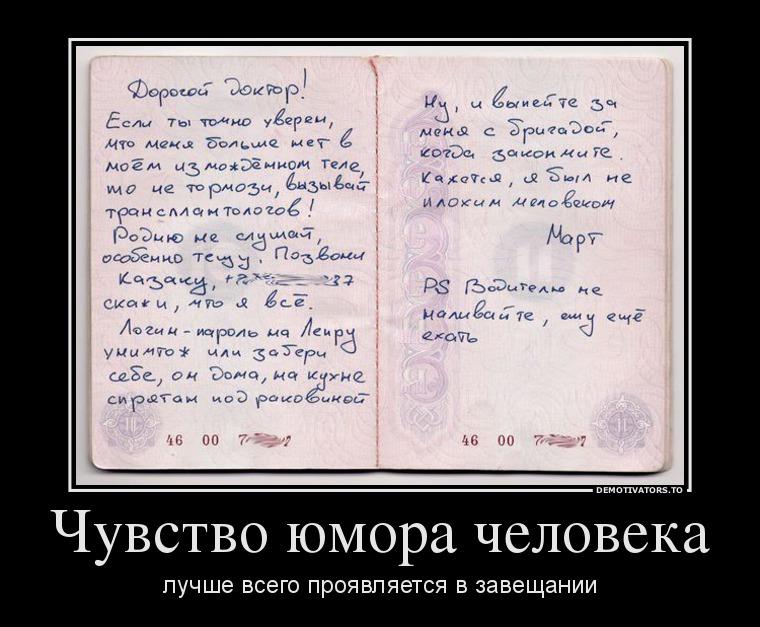 Дорогой доктор!
Если ты точно уверен,
что меня больше нет в
моём измождённом теле,
то не тормози, вызывай
трансплантологов!
Родню не слушай,
особенно тещу. Позвони
Казаку, +7 37
скажи, что я всё.
Логин-пароль на Лепру
уничтож или забери
себе, он дома, на кухне
спрятан под раковиной
46 00 7
Ну, и выпейте за
меня с бригадой,
когда закончите.
Кажется, я был не
плохим человеком
Март
PS Водителю не
наливайте, ему ещё
ехать
46 00 7
DEMOTIVATORS.TO
Чувство юмора человека
лучше всего проявляется в завещании